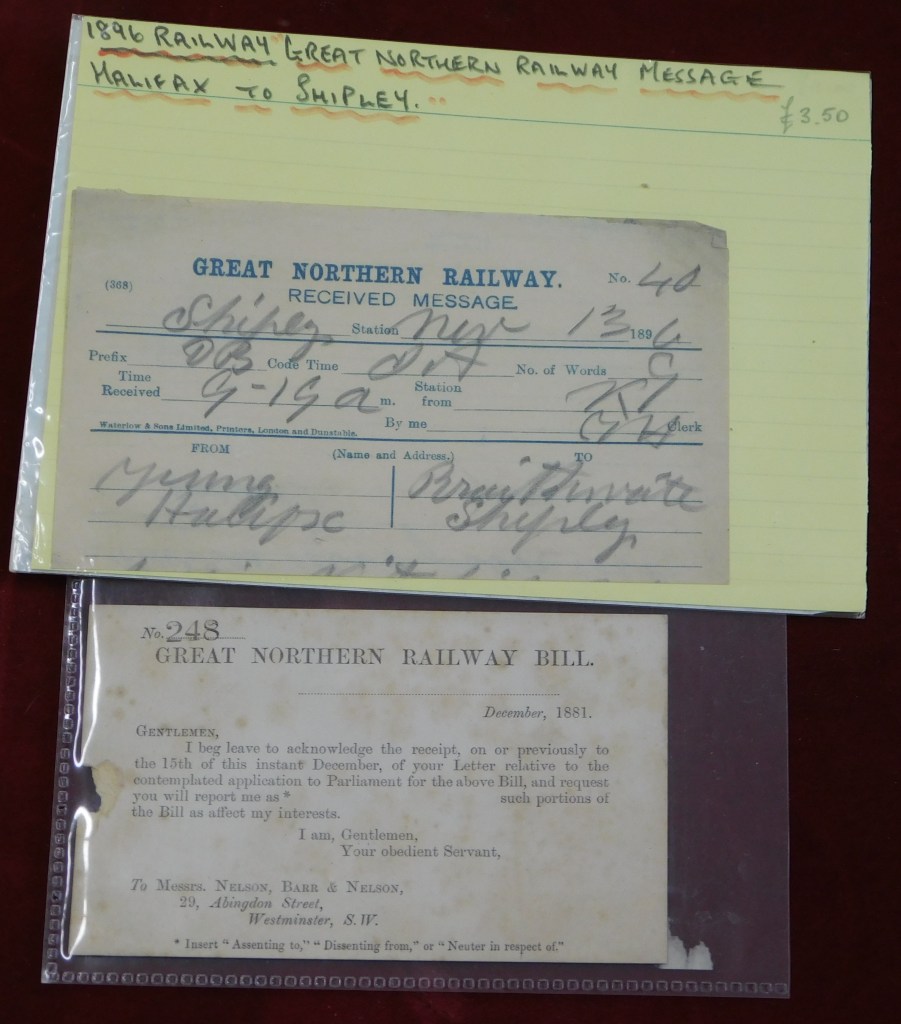 1896 RAILWAY GREAT NORTHERN RAILWAY MESSAGE
HALIFAX TO SHIPLEY.
£3.50
GREAT NORTHERN RAILWAY.
(368)
No. 40
RECEIVED MESSAGE
Shipley Station 13 1896
Prefix DB Code Time No. of Words 9
Time Received 9-19 a m. Station from
By me Clerk
Waterlow & Sons Limited, Printers, London and Dunstable.
FROM (Name and Address.) TO
Young Braithwaite
Halifx Shipley
No. 248
GREAT NORTHERN RAILWAY BILL.
December, 1881.
GENTLEMEN,
I beg leave to acknowledge the receipt, on or previously to
the 15th of this instant December, of your Letter relative to the
contemplated application to Parliament for the above Bill, and request
you will report me as * such portions of
the Bill as affect my interests.
I am, Gentlemen,
Your obedient Servant,
To Messrs. NELSON, BARR & NELSON,
29, Abingdon Street,
Westminster, S.W.
* Insert "Assenting to," "Dissenting from," or "Neuter in respect of."